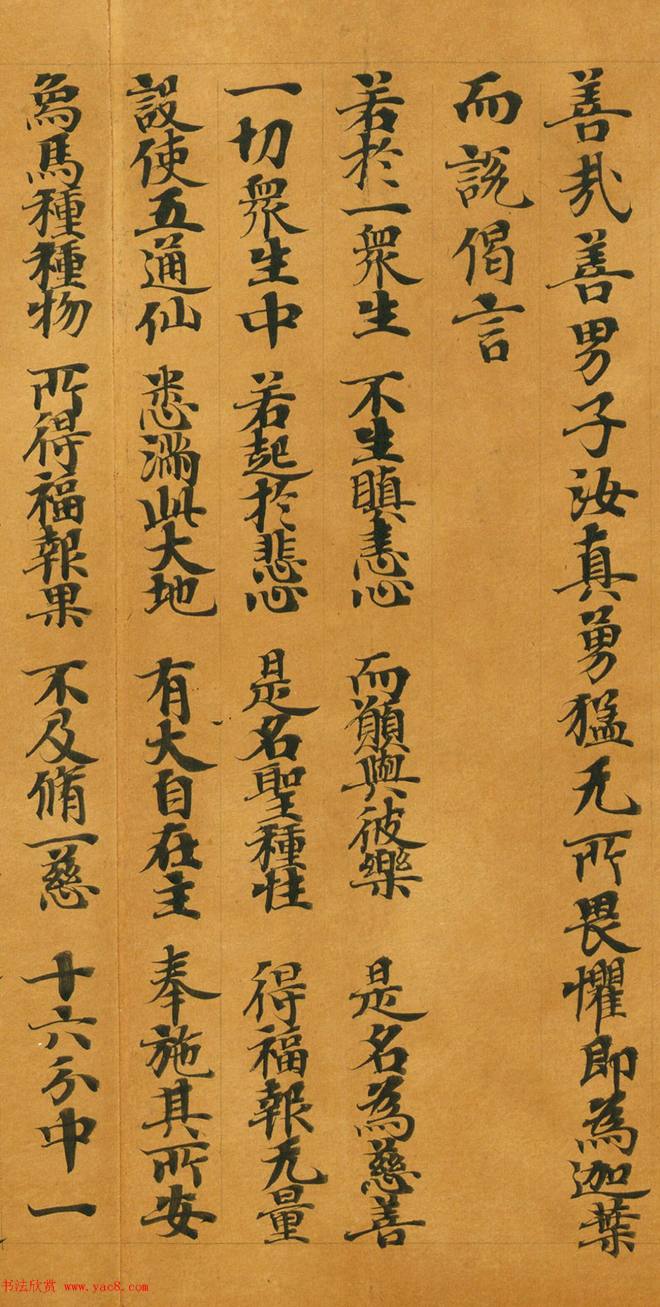 善哉善男子汝真勇猛无所畏懼即為迦葉
而說偈言
若於一衆生 不生瞋恚心 而願與彼樂 是名為慈善
一切衆生中 若起於悲心 是名聖種性 得福報无量
設使五通仙 悉滿此大地 有大自在主 奉施其所安
象馬種種物 所得福報果 不及脩一慈 十六分中一
书法欣赏 www.yac8.com